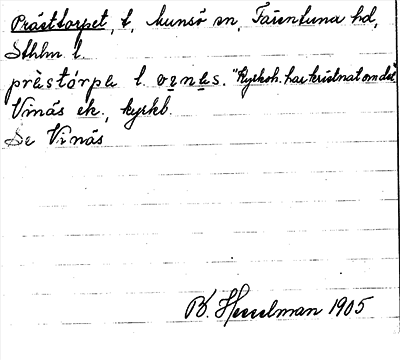 Prästtorpet, t, Munsö sn, Färentuna hd,
Sthlm l.
prästórpe l. vęnęs. "Kyrkoh. har kristnat om det."
Vinäs ek., kyrkb.
Se Vinäs
B. Hesselman 1905